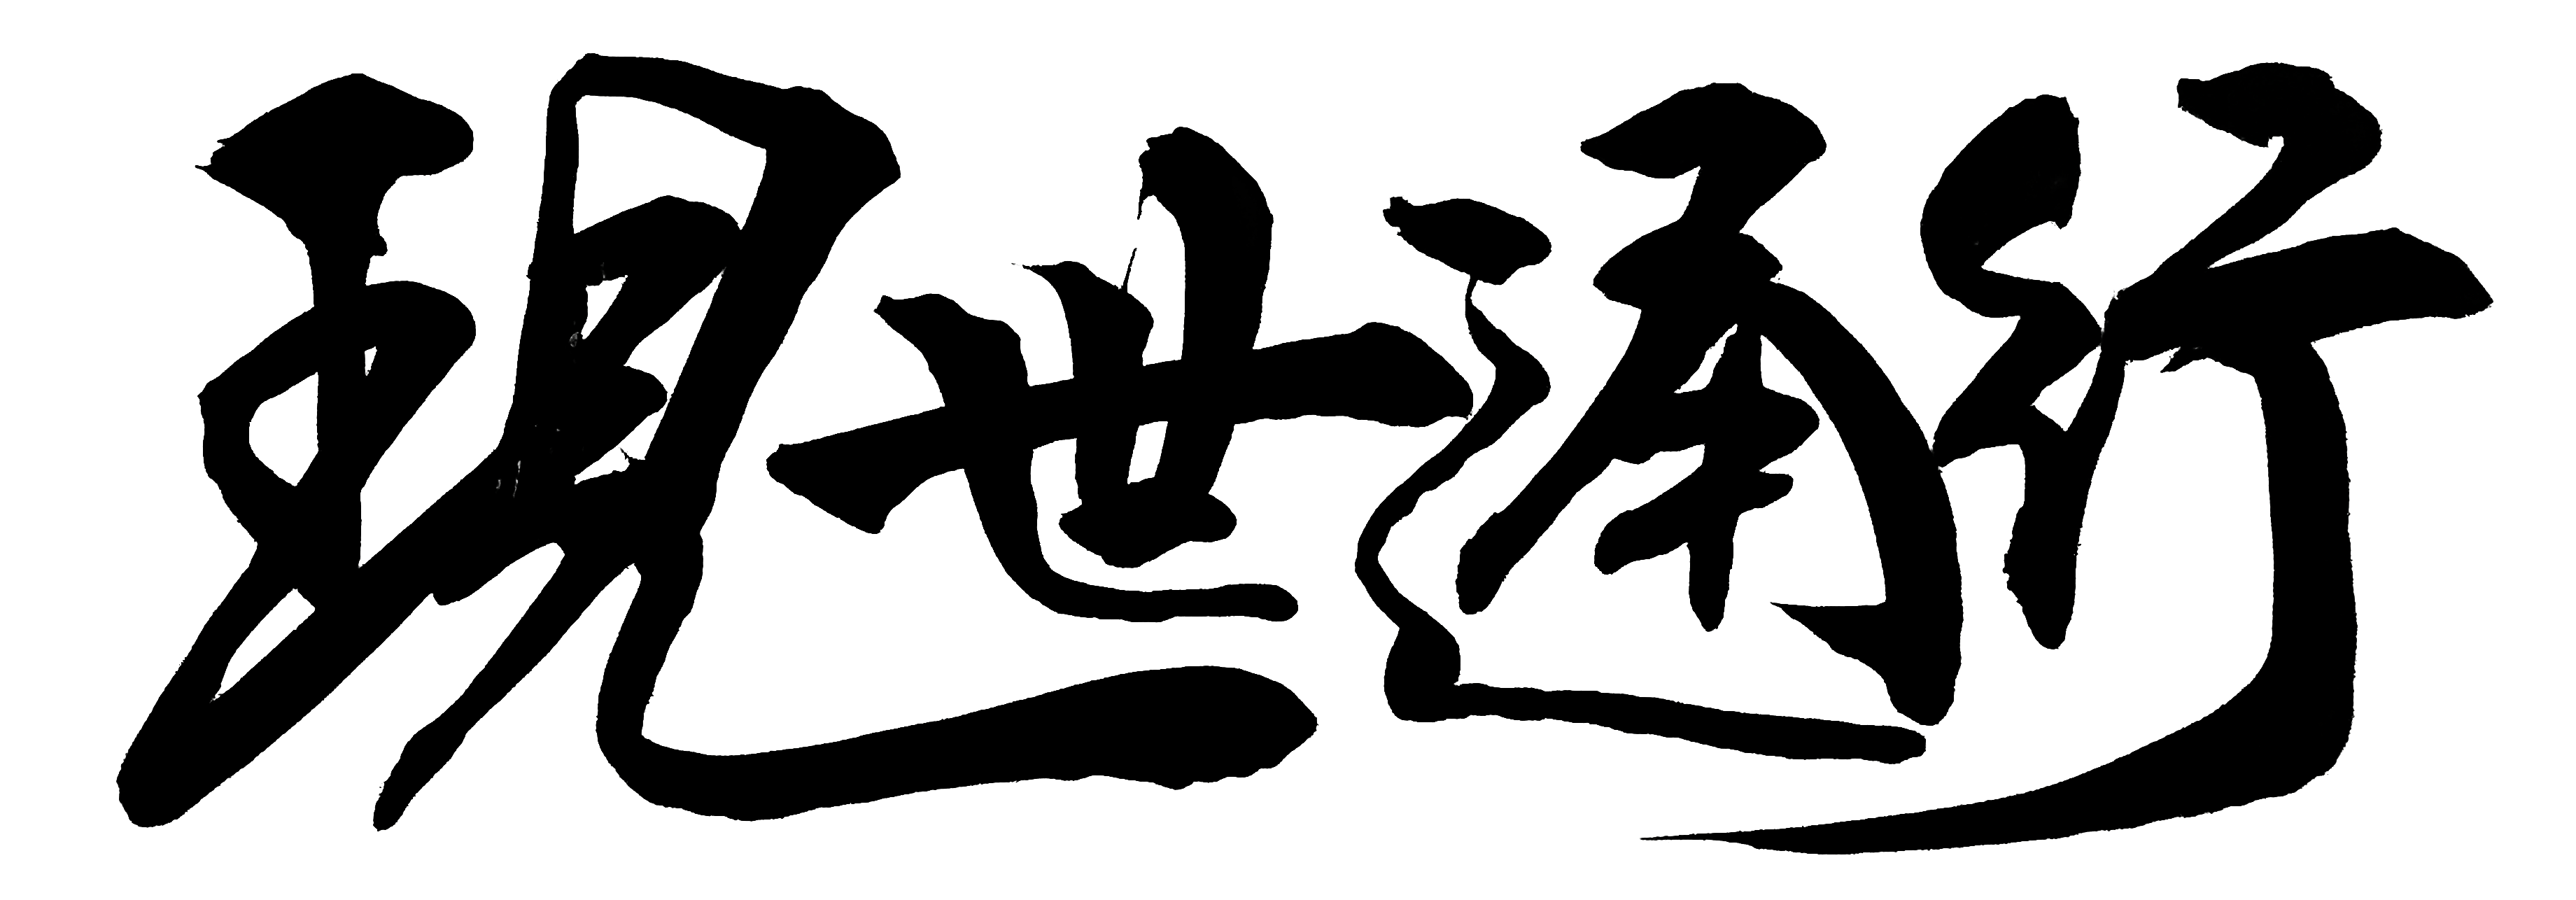 現世通行